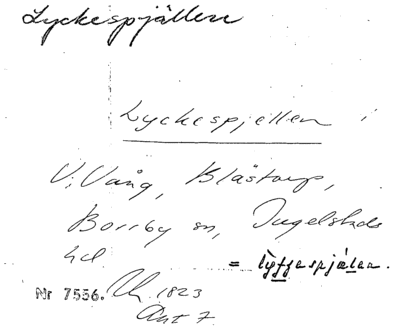 Lyckespjällen
Lyckespjellen
V. Vång, Blästorp,
Borrby sn, Ingelstads
hd
= lyttespjálen.
Nr 7556. 1823
Akt 7